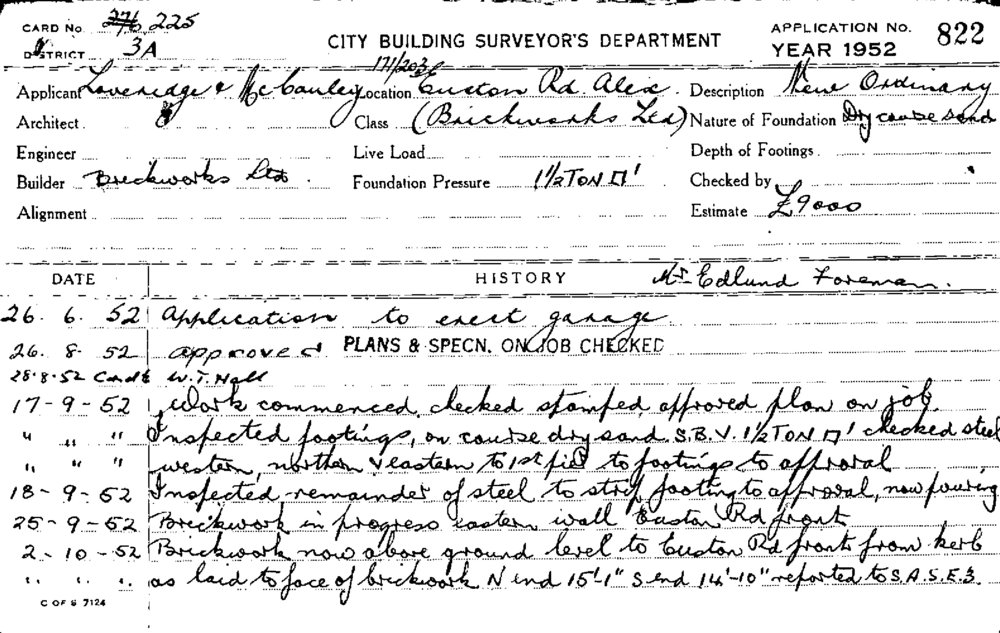 CARD No. 276 225
DISTRICT 3A
CITY BUILDING SURVEYOR'S DEPARTMENT
APPLICATION No. 822
YEAR 1952
171/203
Applicant Loveridge & McCauley Location Euston Rd Alex. Description New Ordinary
Architect Class (Brickworks Ltd) Nature of Foundation Dry course sand
Engineer Live Load Depth of Footings
Builder Brickworks Ltd. Foundation Pressure 1½ TON □' Checked by
Alignment Estimate £9000
DATE HISTORY Mr Edlund Foreman.
26. 6. 52 Application to erect garage.
26. 8. 52 approved PLANS & SPECN. ON JOB CHECKED
28-8-52 W.T. Hall
17-9-52 Work commenced, checked stamped approved plan on job.
" " " Inspected footings, on course dry sand. S.B.V. 1½ TON □' checked steel
" " " western, northern & eastern to 1st pier to footings to approval
18-9-52 Inspected remainder of steel to strip footing to approval, now pouring
25-9-52 Brickwork in progress eastern wall Euston Rd front
2-10-52 Brickwork now above ground level to Euston Rd front from kerb
" " " as laid to face of brickwork N end 15'-1" S end 14'-10" reported to S.A.S.E3.
C OF S 7124